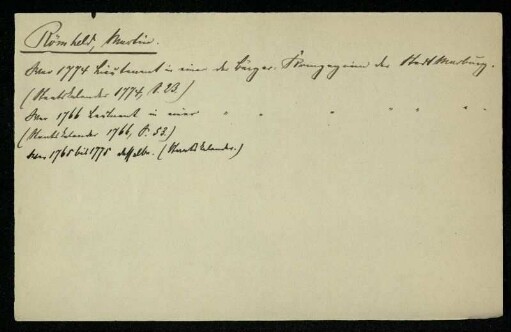 Römheld, Martin.
War 1774 Lieutenant in einer der bürger. Kompagnien der Stadt Marburg.
(Staatskalender 1774, S. 23.)
War 1766 Leutnant in einer " " " " " "
(Staatskalender 1766, S. 52.)
War 1765 bis 1775 desselbe. (Staatskalender.)